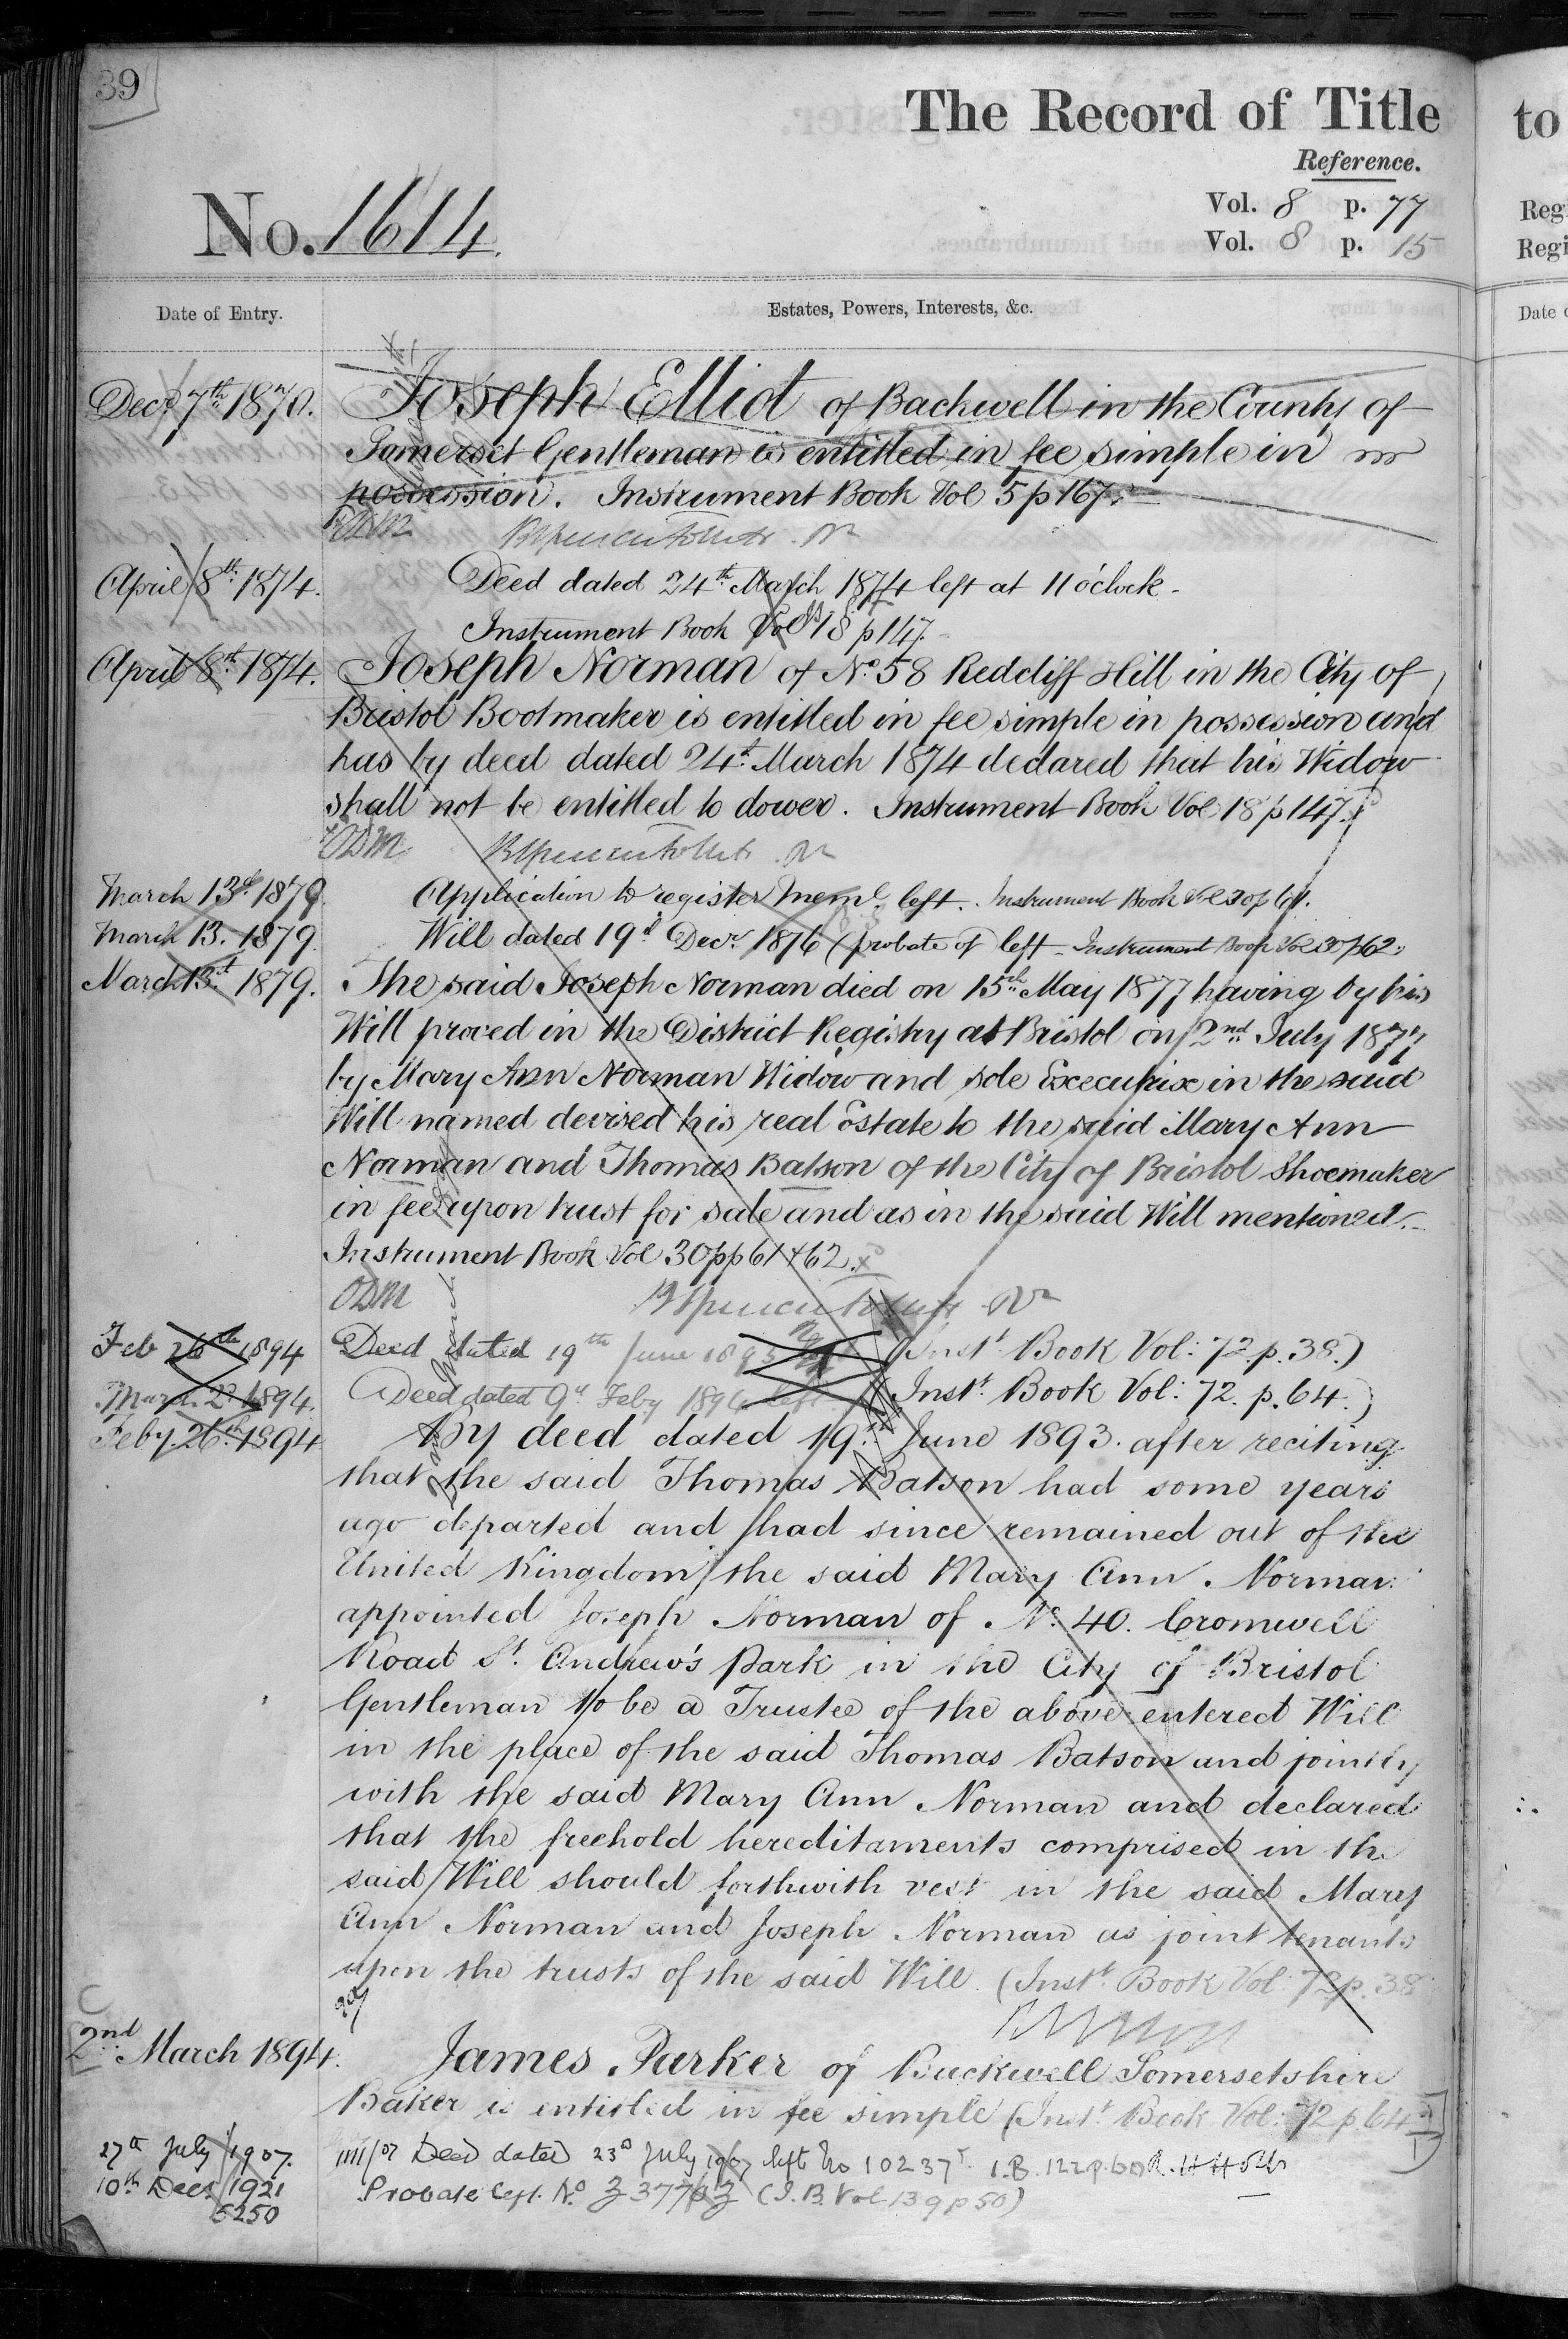 39
The Record of Title
to
Reference.
Vol. 8 p. 77
Vol. 8 p. 15
No. 1614.
Reg
Regi
Date of Entry.
Estates, Powers, Interests, &c.
Date o
Decr. 7th 1870. Joseph Elliot of Backwell in the County of
Somerset Gentleman is entitled in fee simple in
possession. Instrument Book Vol 5 p 167.
ODM
April 8th 1874. Deed dated 24th March 1874 left at 11 o'clock.
Instrument Book Vol 18 p 147.
April 8th 1874. Joseph Norman of No. 58 Redcliff Hill in the City of
Bristol Bootmaker is entitled in fee simple in possession and
has by deed dated 24th March 1874 declared that his Widow
shall not be entitled to dower. Instrument Book Vol 18 p 147.
ODM
March 13th 1879 Application to register Meml. left. Instrument Book Vol 30 p 61.
March 13. 1879. Will dated 19th Decr. 1876 (probate of) left - Instrument Book Vol 30 p 62.
March 13th 1879. The said Joseph Norman died on 15th May 1877 having by his
Will proved in the District Registry at Bristol on 2nd July 1877
by Mary Ann Norman Widow and sole Executrix in the said
Will named devised his real Estate to the said Mary Ann
Norman and Thomas Batson of the City of Bristol Shoemaker
in fee upon trust for sale and as in the said Will mentioned.
Instrument Book Vol 30 pp 61 & 62.
ODM
Feb 26th 1894 Deed dated 19th June 1893 (Inst. Book Vol: 72. p. 38.)
March 2nd 1894. Deed dated 9th Feby 1894 left (Inst. Book Vol: 72. p. 64.)
Feby. 26th 1894 By deed dated 19th June 1893. after reciting
that the said Thomas Batson had some years
ago departed and had since remained out of the
United Kingdom the said Mary Ann Norman
appointed Joseph Norman of No. 40. Cromwell
Road St. Andrew's Park in the City of Bristol
Gentleman to be a Trustee of the above entered Will
in the place of the said Thomas Batson and jointly
with the said Mary Ann Norman and declared
that the freehold hereditaments comprised in the
said Will should forthwith vest in the said Mary
Ann Norman and Joseph Norman as joint tenants
upon the trusts of the said Will. (Inst. Book Vol: 72 p. 38
2nd March 1894. James Parker of Backwell Somersetshire
Baker is entitled in fee simple (Inst. Book Vol: 72 p. 64)
27th July 1907. Deed dated 23d July 1907 left No 10237 I.B. 122 p. 60
10th Decr 1921 Probate Cept. No. (I.B. Vol 139 p 50)
5250